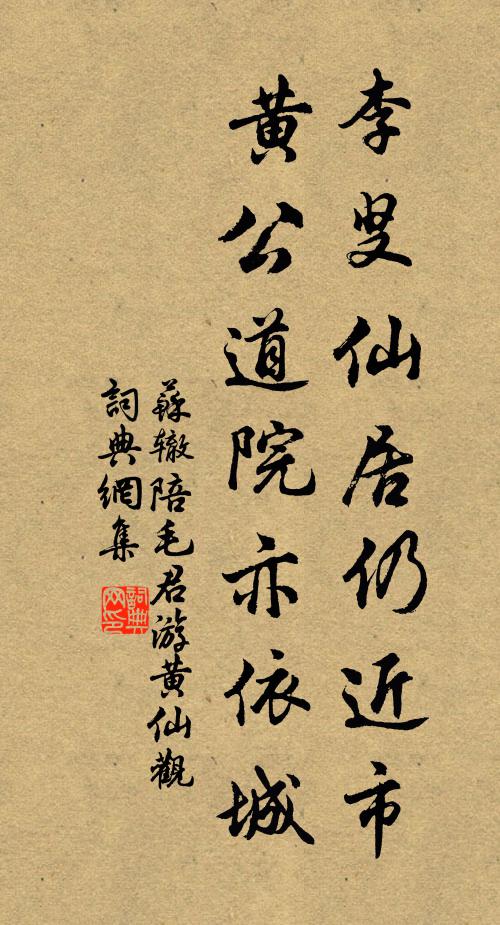 李叟仙居仍近市
黄公道院亦依城
蘇辙陪毛君游黄仙觀
詞典網集
詞典网印